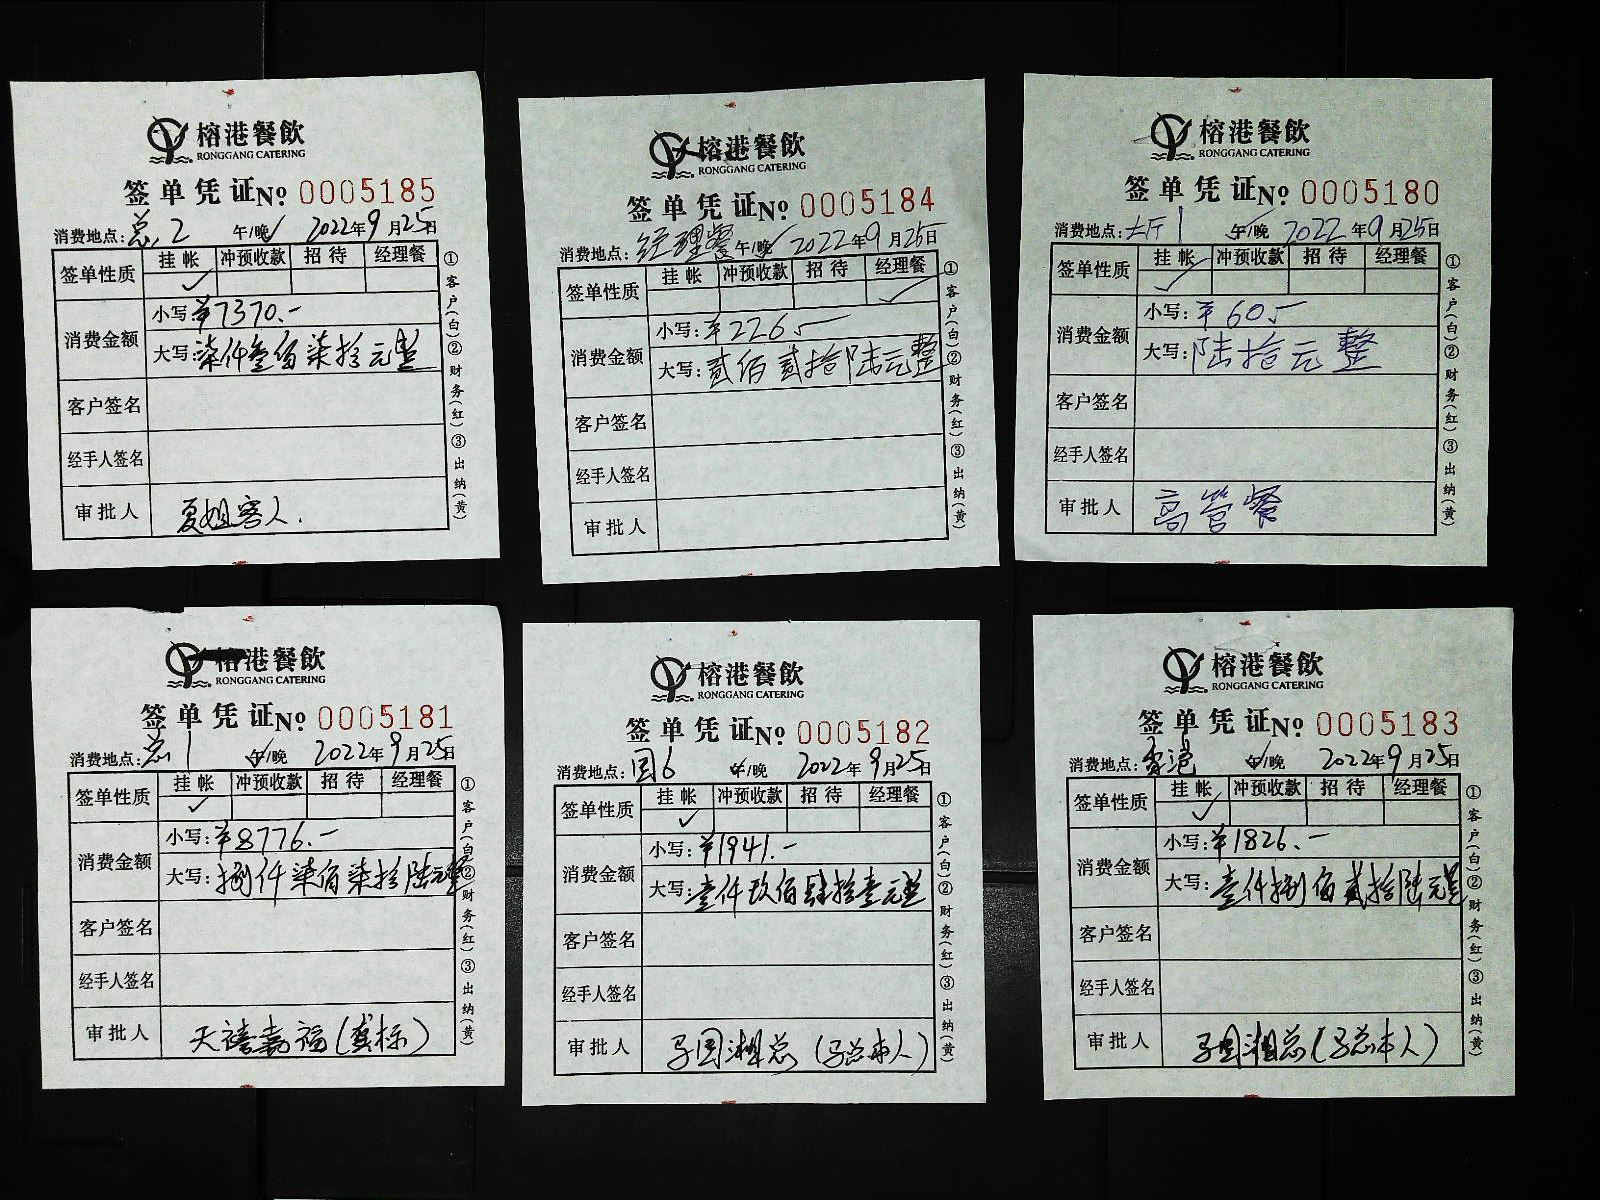 榕港餐飲
RONGGANG CATERING
签单凭证№ 0005185
消费地点:总2 午/晚 2022年9月25日
签单性质 挂帐 冲预收款 招待 经理餐
✓
消费金额 小写:¥7370.-
大写:柒仟叁佰柒拾元整
客户签名
经手人签名
审批人 夏姐客人.
①客户(白)②财务(红)③出纳(黄)
榕港餐飲
RONGGANG CATERING
签单凭证№ 0005184
消费地点:经理餐 午/晚 2022年9月25日
签单性质 挂帐 冲预收款 招待 经理餐
✓
消费金额 小写:¥226.-
大写:贰佰贰拾陆元整
客户签名
经手人签名
审批人
①客户(白)②财务(红)③出纳(黄)
榕港餐飲
RONGGANG CATERING
签单凭证№ 0005180
消费地点:大厅1 午/晚 2022年9月25日
签单性质 挂帐 冲预收款 招待 经理餐
✓
消费金额 小写:¥60.-
大写:陆拾元整
客户签名
经手人签名
审批人 高管餐
①客户(白)②财务(红)③出纳(黄)
榕港餐飲
RONGGANG CATERING
签单凭证№ 0005181
消费地点:总1 午/晚 2022年9月25日
签单性质 挂帐 冲预收款 招待 经理餐
✓
消费金额 小写:¥8776.-
大写:捌仟柒佰柒拾陆元整
客户签名
经手人签名
审批人 天禧嘉福
①客户(白)②财务(红)③出纳(黄)
榕港餐飲
RONGGANG CATERING
签单凭证№ 0005182
消费地点:国6 午/晚 2022年9月25日
签单性质 挂帐 冲预收款 招待 经理餐
✓
消费金额 小写:¥1941.-
大写:壹仟玖佰肆拾壹元整
客户签名
经手人签名
审批人 马国湘总(马总本人)
①客户(白)②财务(红)③出纳(黄)
榕港餐飲
RONGGANG CATERING
签单凭证№ 0005183
消费地点:香港 午/晚 2022年9月25日
签单性质 挂帐 冲预收款 招待 经理餐
✓
消费金额 小写:¥1826.-
大写:壹仟捌佰贰拾陆元整
客户签名
经手人签名
审批人 马国湘总(马总本人)
①客户(白)②财务(红)③出纳(黄)